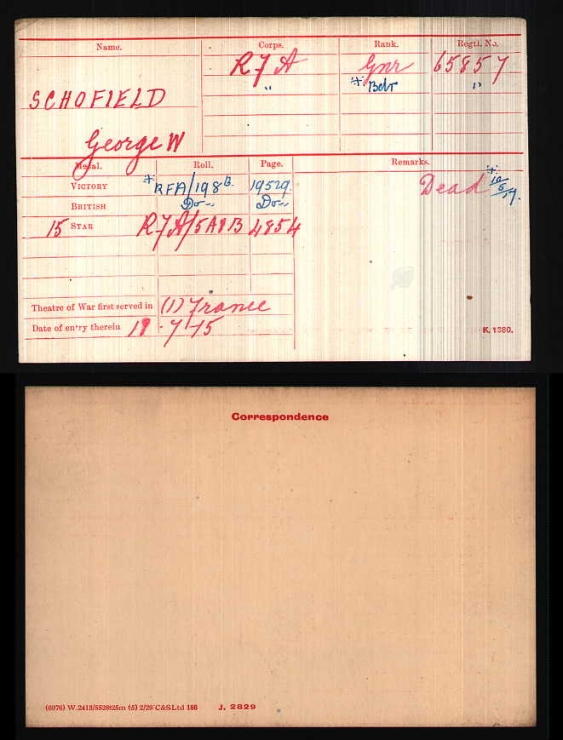 Name. Corps. Rank. Regtl. No.
R F A Gnr 65857
" + Bdr "
SCHOFIELD
George W
Medal. Roll. Page. Remarks.
VICTORY + RFA/198B. 19529. Dead
BRITISH Do Do
15 STAR RFA/5A&B 4854
Theatre of War first served in (1) France
Date of entry therein 19-7-15
K. 1380.
Correspondence
(6076) W.2413/5529 2/20 C&S Ltd 188 J. 2829